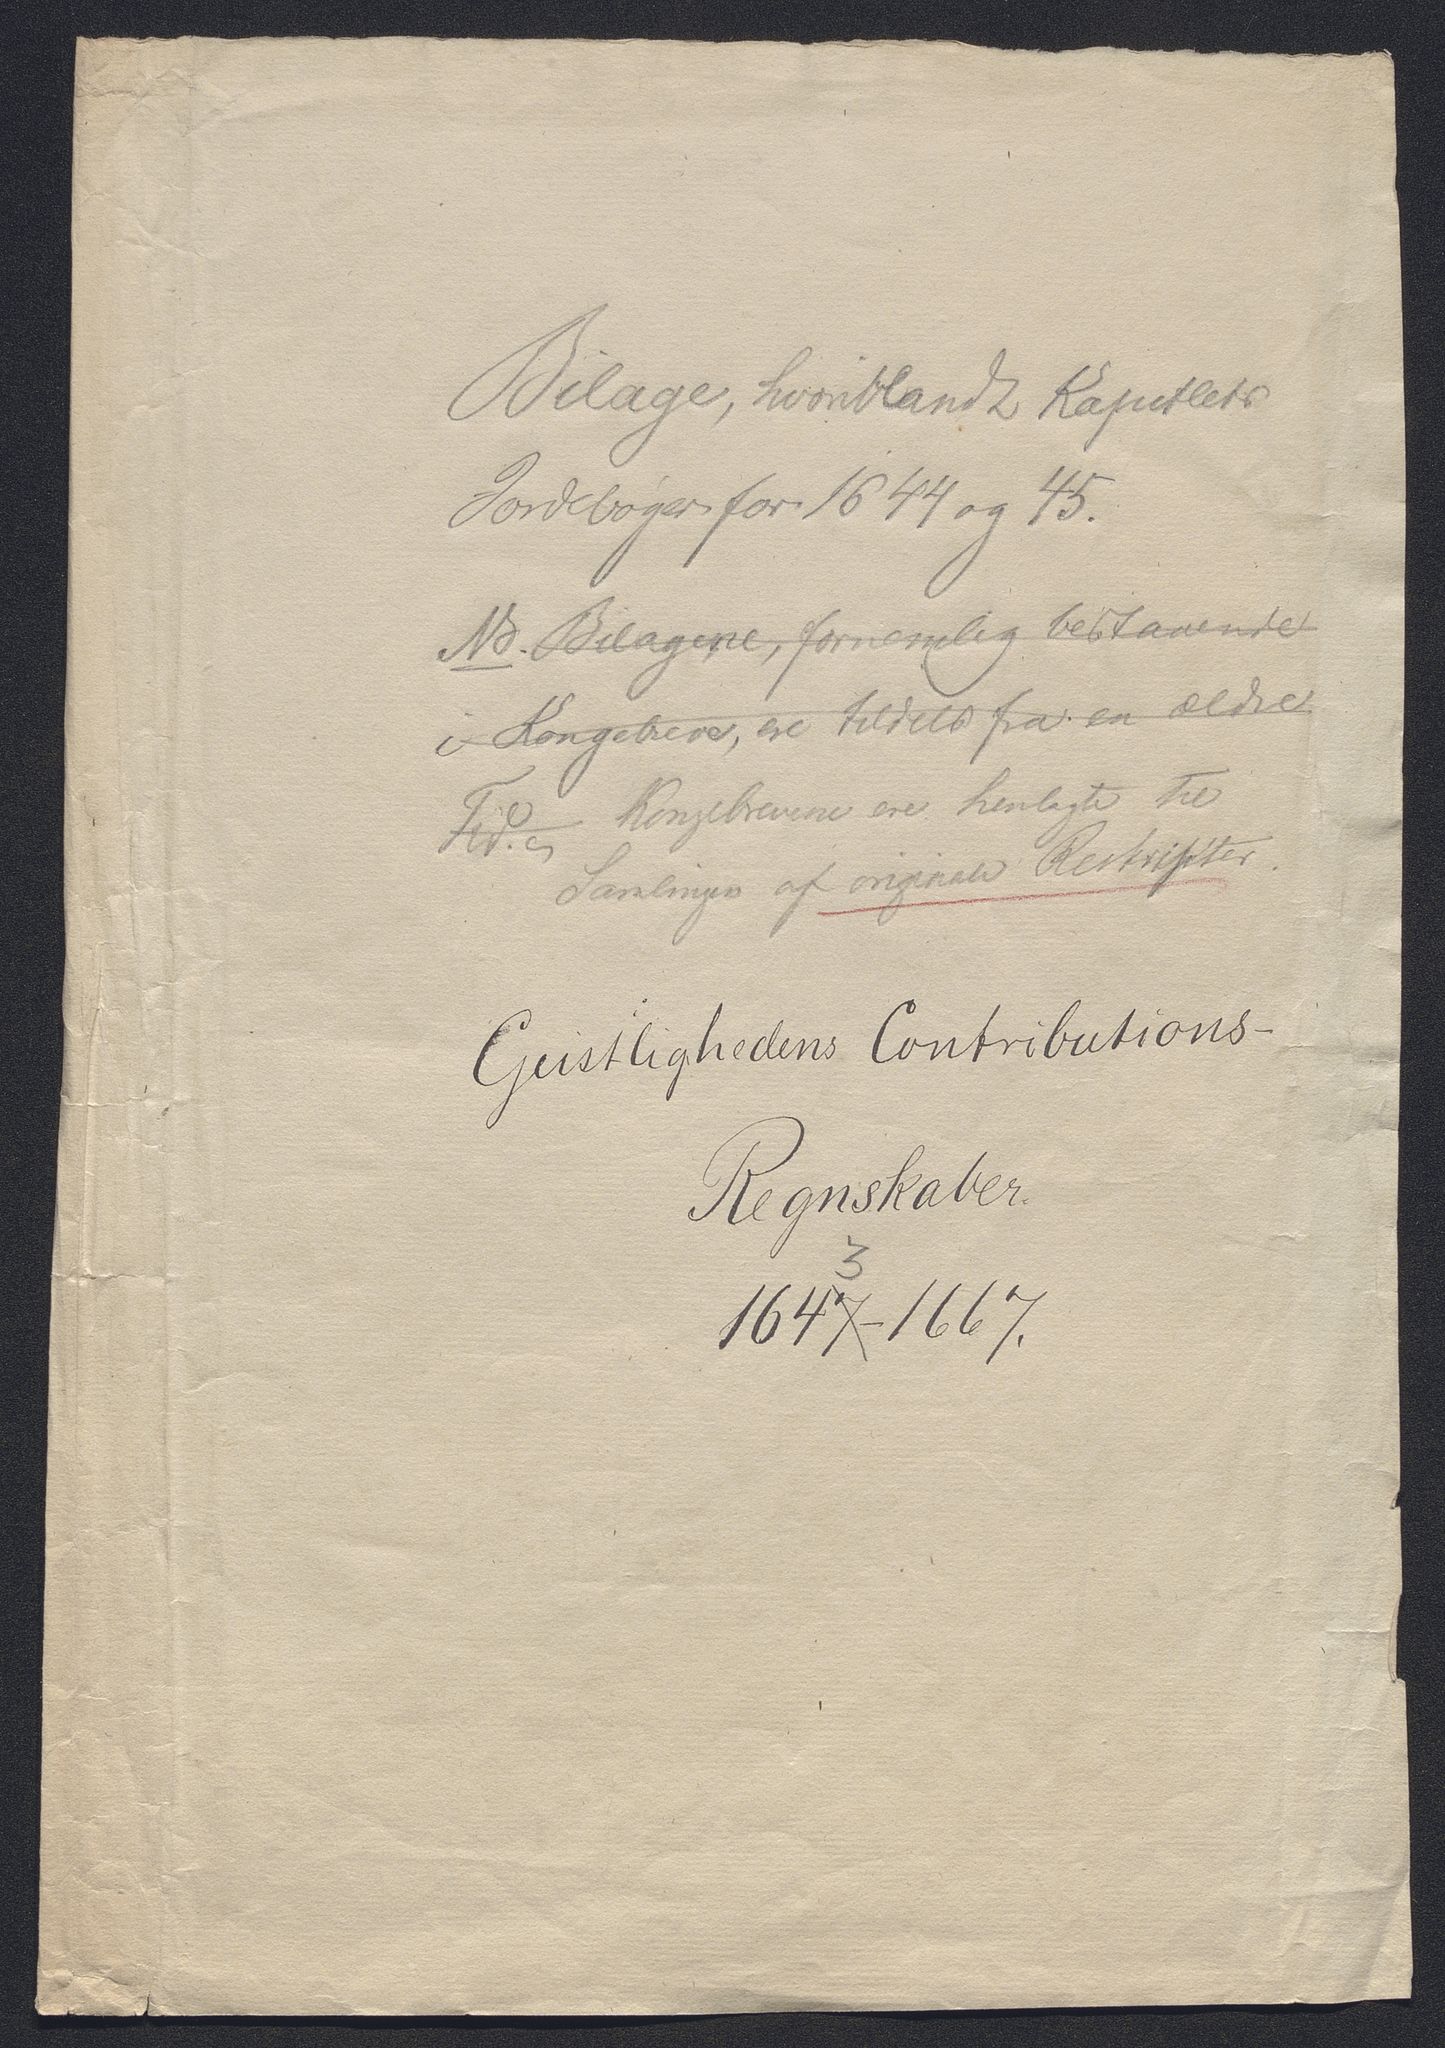 Bilage, hvoriblandt Kapitlets
Jordebøger for 1644 og 45.
NB. Bilagene, fornemlig bestaaende
i Kongebreve, ere tildels fra en ældre
Tid.
Kongebrevene ere henlagte til
Samlingen af originale Reskripter.
Geistlighedens Contributions-
Regnskaber.
3
1647-1667.